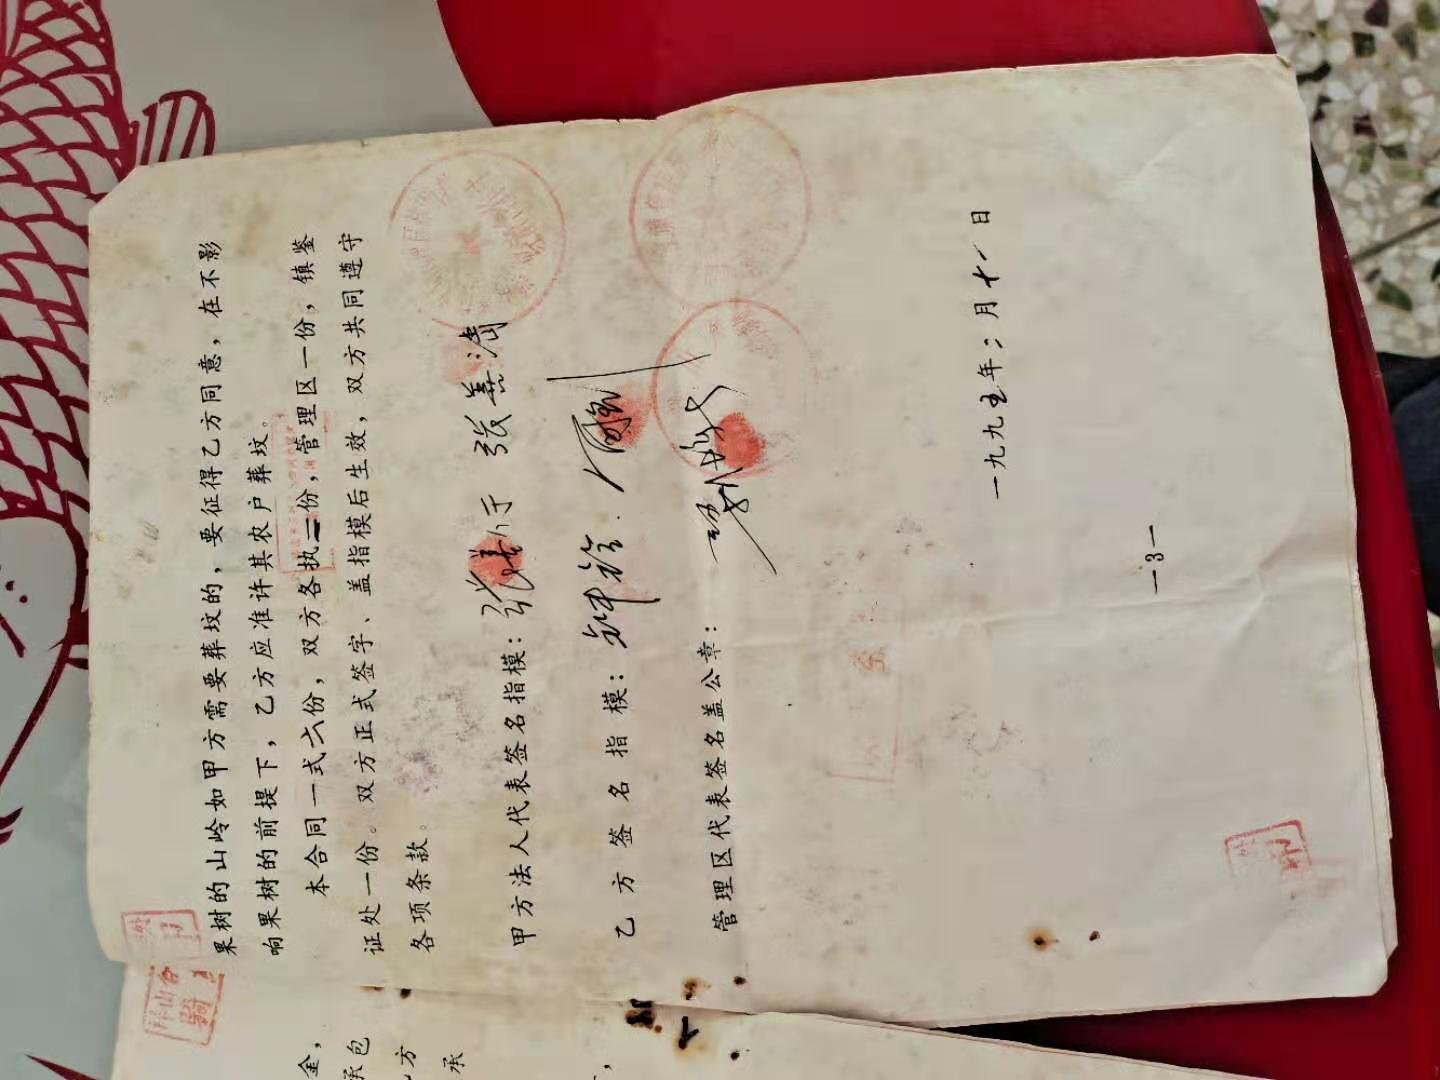 果树的山岭如甲方需要葬坟的，要征得乙方同意，在不影
响果树的前提下，乙方应准许其农户葬坟。
本合同一式六份，双方各执二份，管理区一份，镇鉴
证处一份。双方正式签字、盖指模后生效，双方共同遵守
各项条款。
甲方法人代表签名指模：张
乙方签名指模：
管理区代表签名盖公章：
一九九五年二月十一日
—3—
金，
承包
方
承